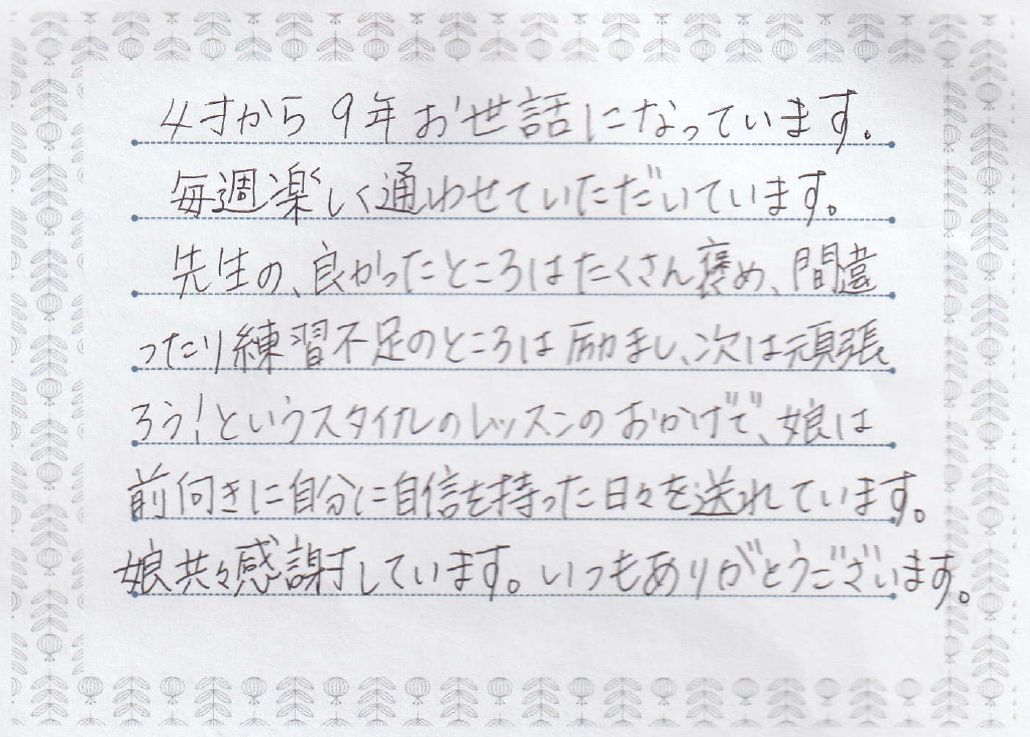 4才から9年お世話になっています。
毎週楽しく通わせていただいています。
先生の、良かったところはたくさん褒め、間違
ったり練習不足のところは励まし、次は頑張
ろう!というスタイルのレッスンのおかげで、娘は
前向きに自分に自信を持った日々を送れています。
娘共々感謝しています。いつもありがとうございます。